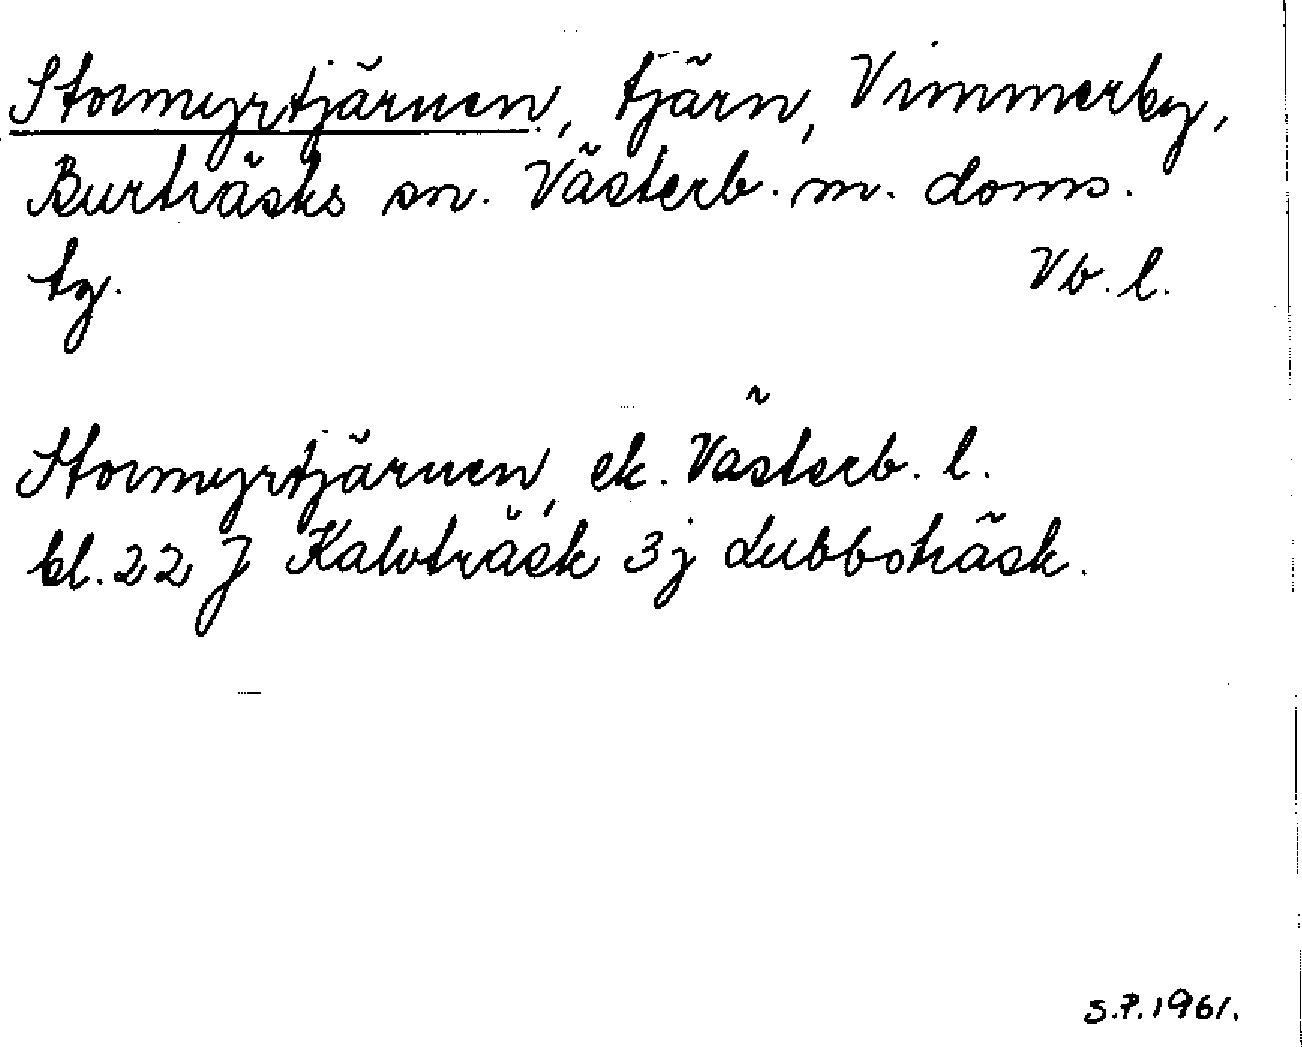 Stormyrtjärnen, tjärn, Vimmerby,
Burträsks sn. Västerb. m. doms.
tg. Vb. l.
Stormyrtjärnen, ek. Västerb. l.
bl. 22 J Kalvträsk 3j Lubboträsk.
S.P. 1961.